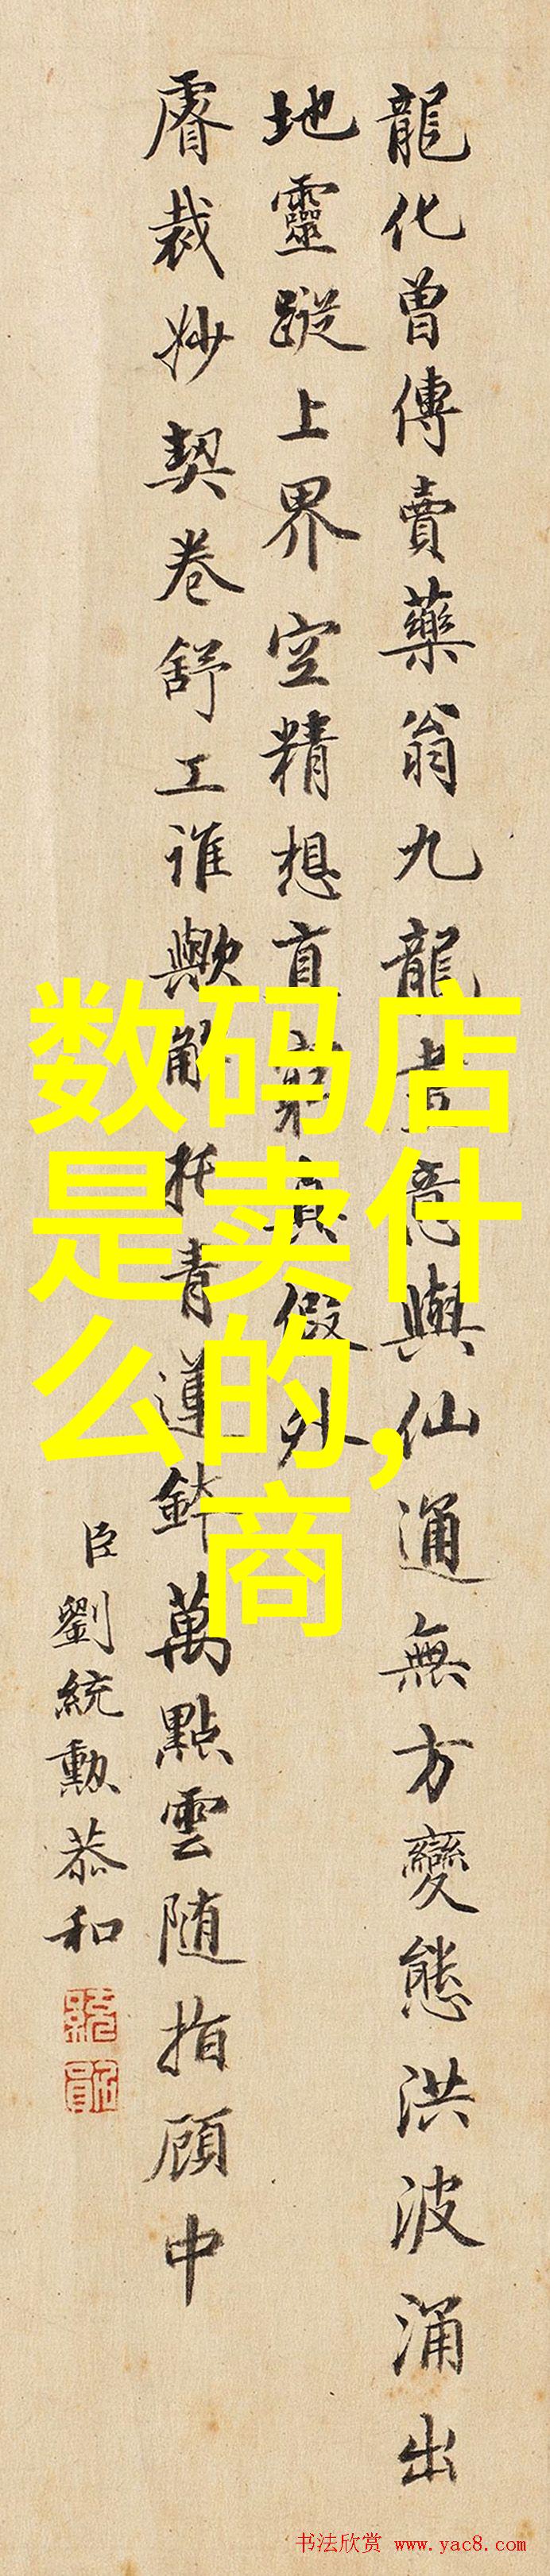 龍化曾傳賣藥翁九龍畫意與仙通無方變態洪波涌出
地靈蹤上界空精想直求真假外
睿裁妙契卷舒工誰歟解托青蓮鉢萬點雲随指顧中
臣劉統勳恭和
数码店
是卖什
么的,
商
书法欣赏 www.yac8.com